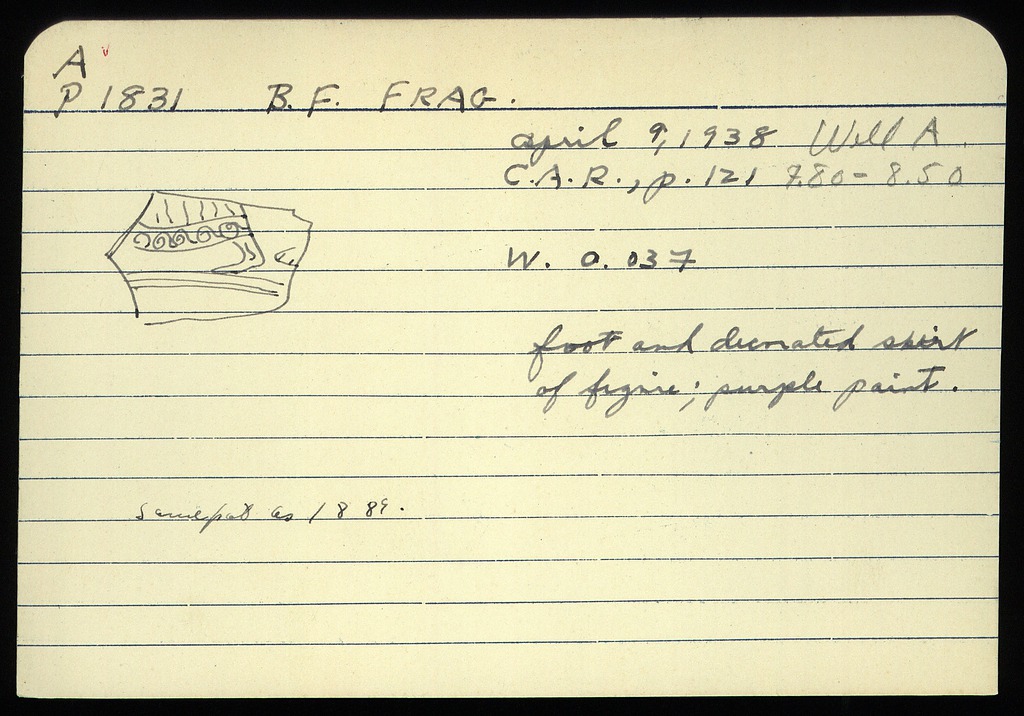 A
P 1831 B.F. FRAG.
April 9, 1938 Well A
C.A.R., p. 121 7.80-8.50
W. 0.037
foot and decorated skirt
of figure; purple paint.
same pot as 1889.